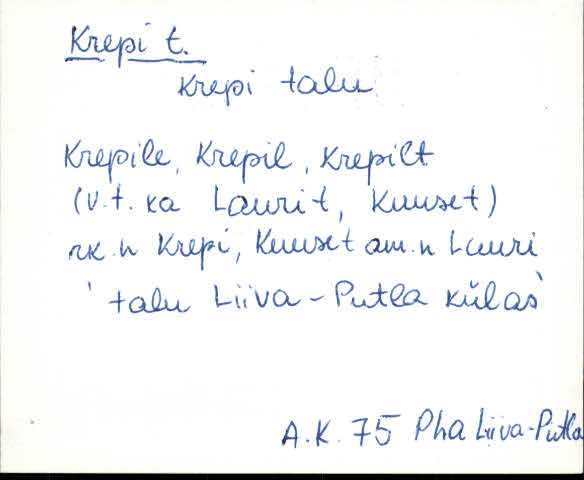 Krepi t.
Krepi talu
Krepile, Krepil, Krepilt
(v.t. ka Laurit, Kuuset)
rk.n Krepi, Kuuset am.n Lauri
' talu Liiva-Putla külas'
A.K. 75 Pha Liiva-Putla